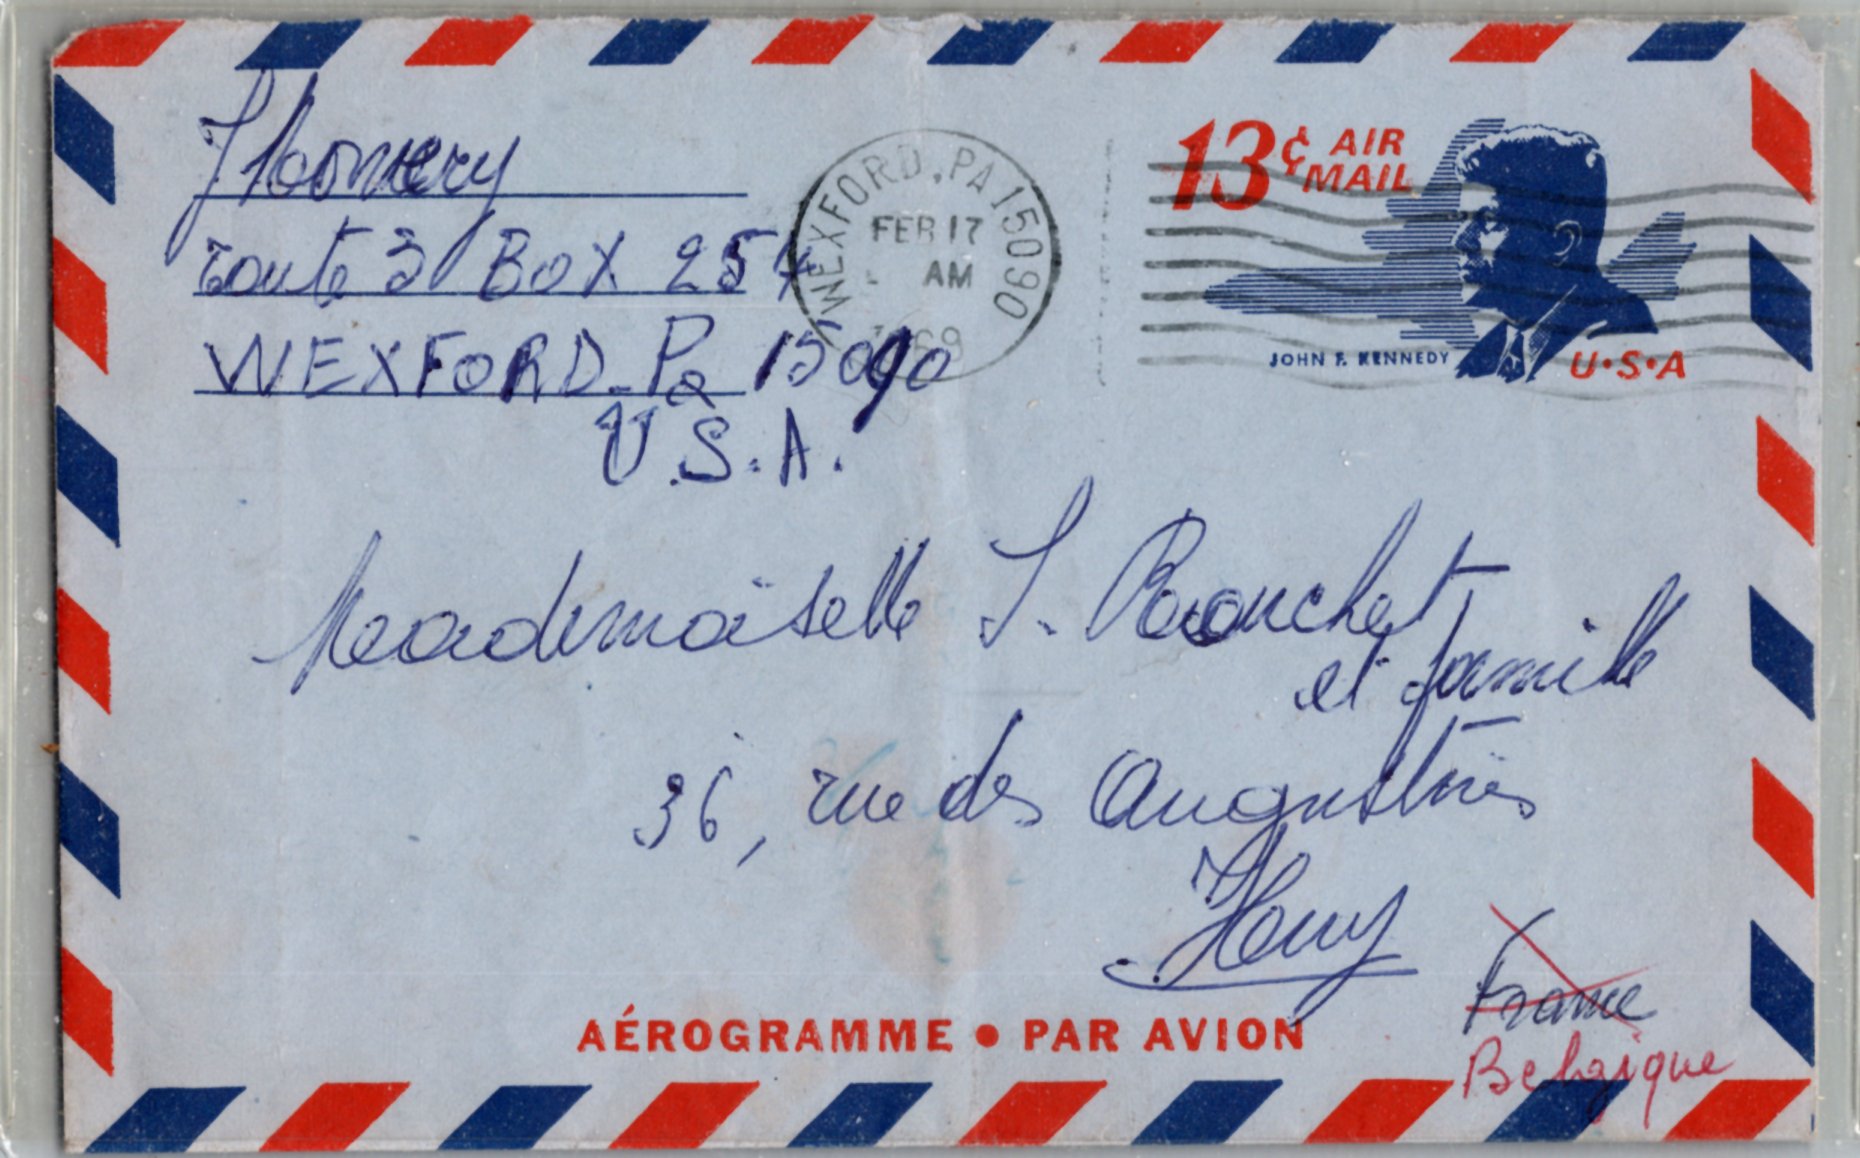 route 3 BOX 254
WEXFORD. Pa 15090
U.S.A.
WEXFORD, PA 15090
FEB 17
AM
1969
13¢ AIR MAIL
JOHN F. KENNEDY
U·S·A
Mademoiselle J.
et famille
36, rue des Augustins
Huy
France
Belgique
AÉROGRAMME • PAR AVION